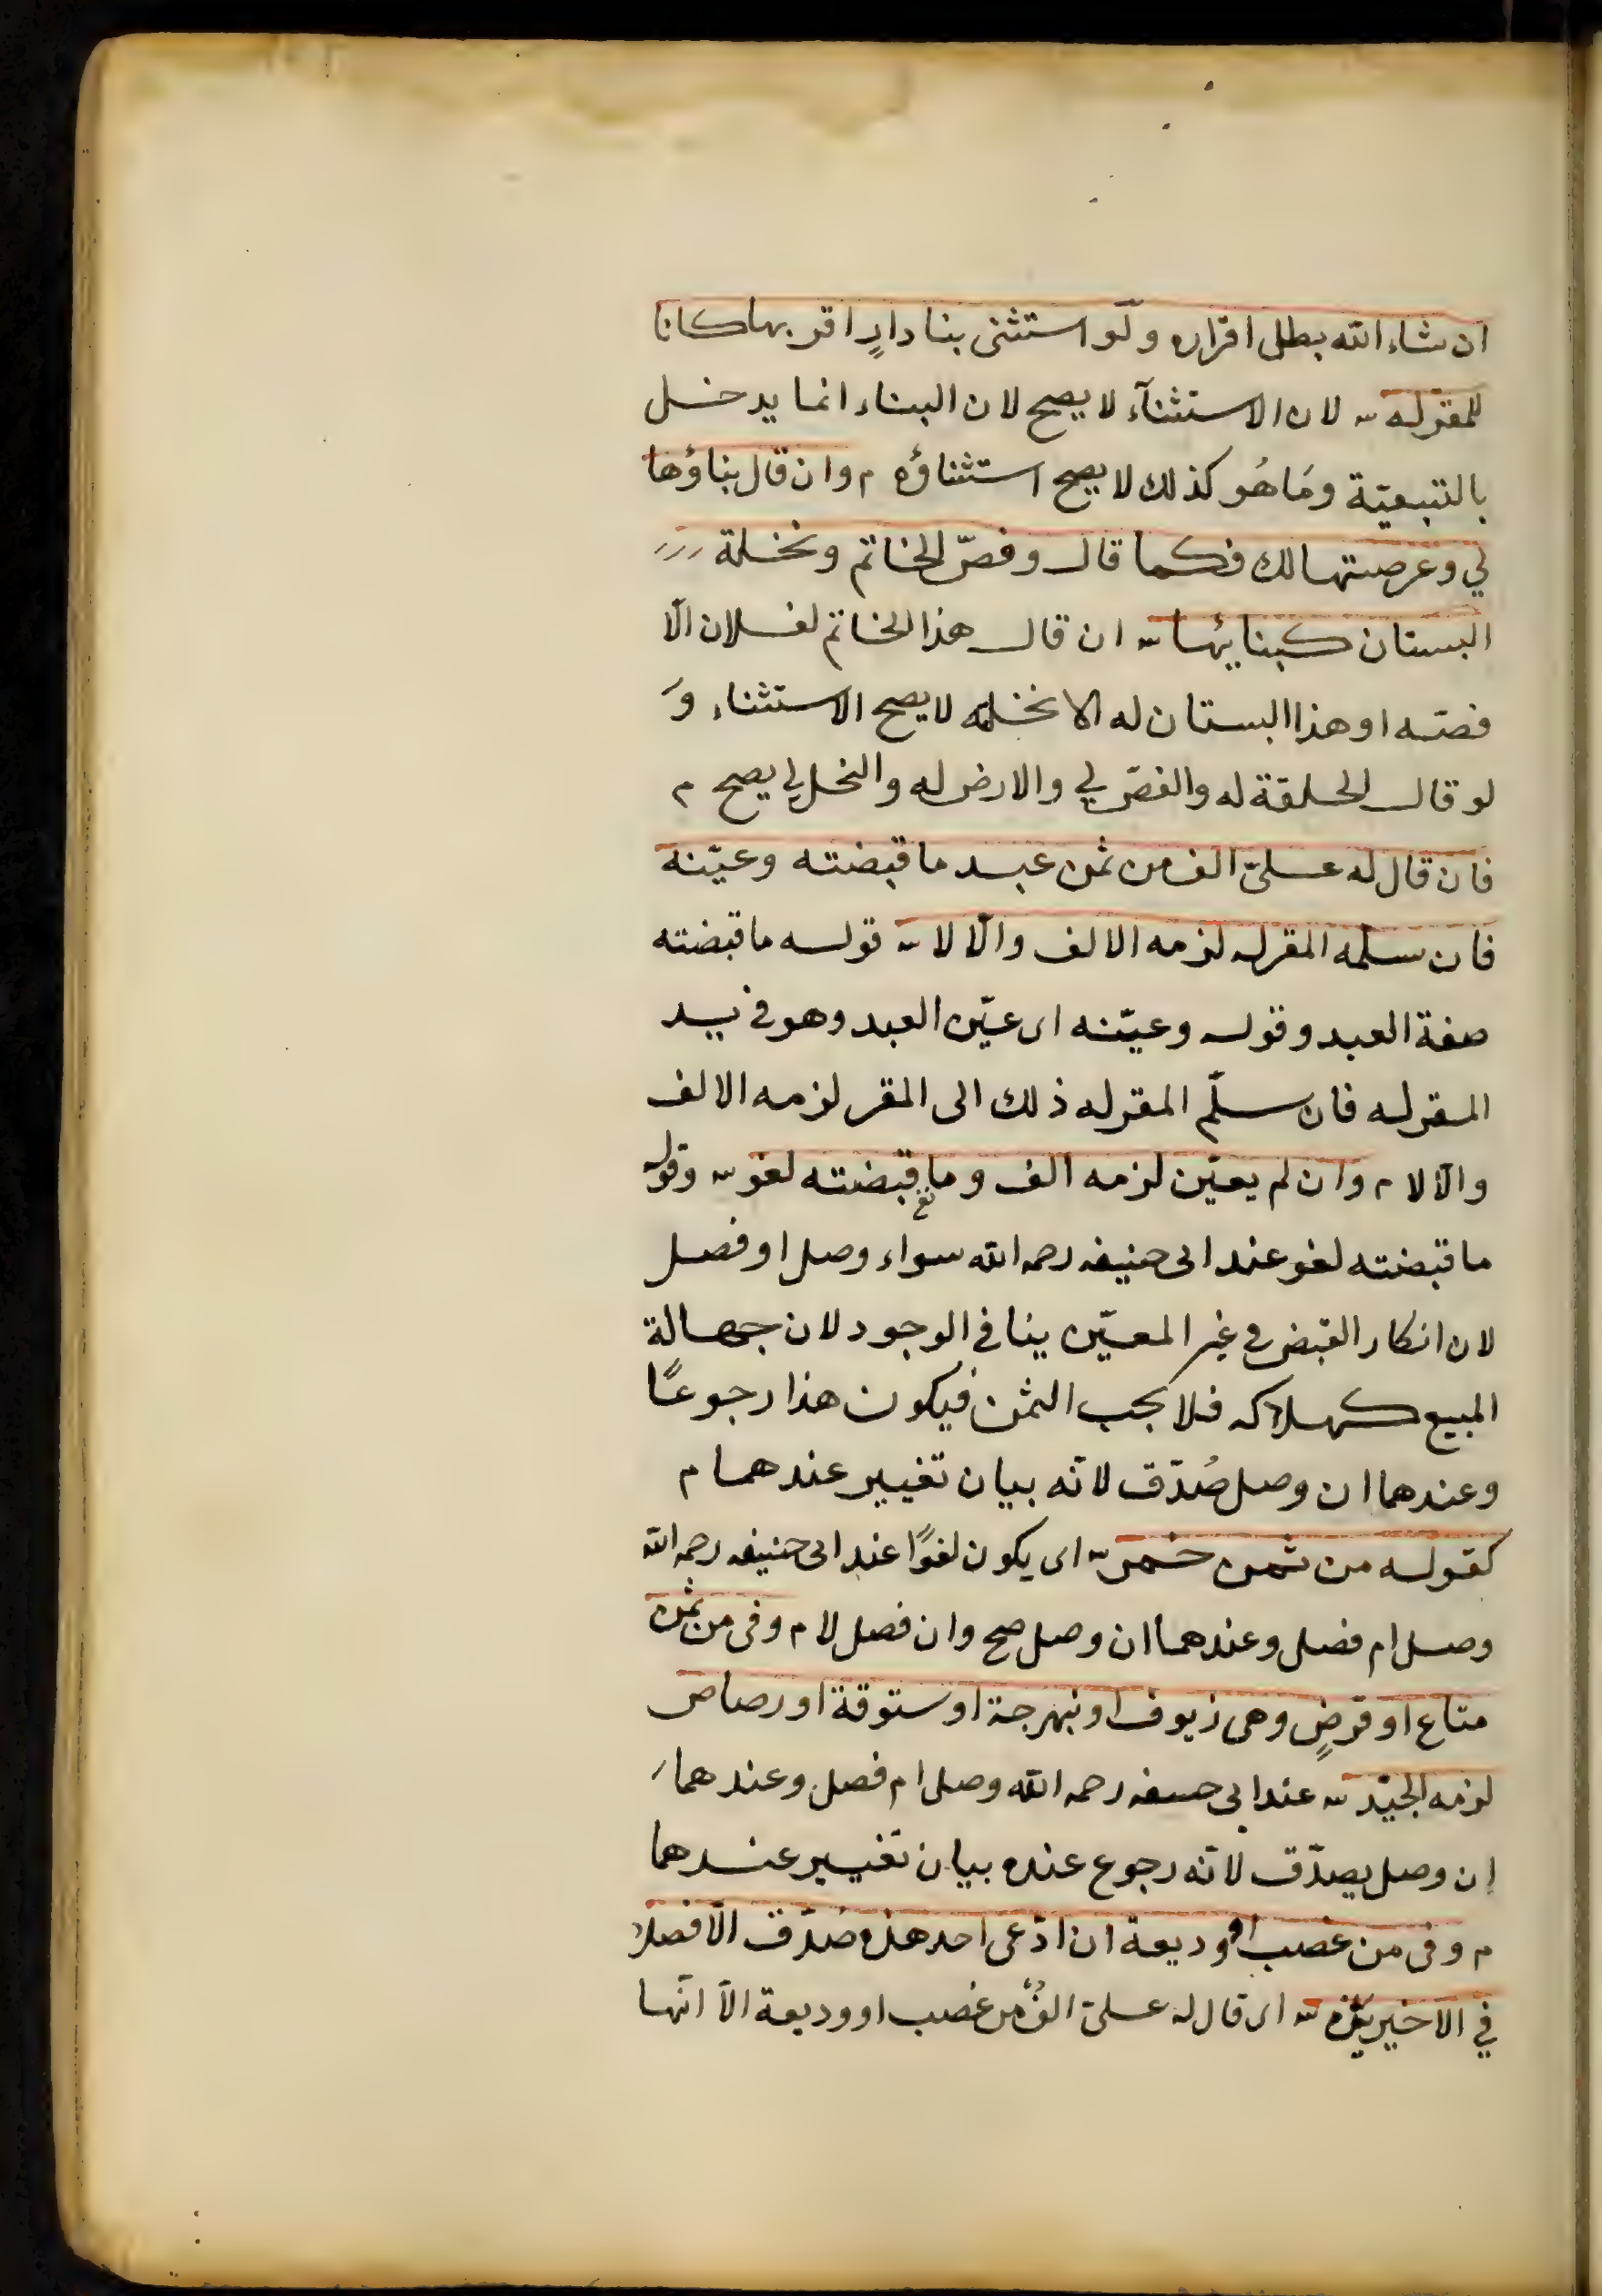 ان شاء الله بطل اقراره ولو استثنى بنا دارٍ اقر بها كانا
للمقر له ش لان الاستثنآء لا يصح لان البناء انما يدخل
بالتبعيّة ومَا هُو كذلك لا يصح استثناؤه م وان قال بناؤها
لي وعرصتها لك فكما قال وفصّ الخاتم ونخلة
البستان كبنائها ش ان قال هذا الخاتم لفلان الّا
فصّه او هذا البستان له الا نخله لا يصح الاستثناء وَ
لو قال الحلقة له والفصّ لي والارض له والنخل لي يصح م
فان قال له علىّ الف من ثمن عبد ما قبضته وعيّنه
فان سلمه المقر له لزمه الالف والّا لا ش قوله ما قبضته
صفة العبد وقوله وعيّنه اى عيّن العبد وهو فى يد
المقر له فان سلّم المقر له ذلك الى المقر لزمه الالف
والّا لا م وان لم يعيّن لزمه الف وما قبضته لغو ش وقوله
ما قبضته لغو عند ابى حنيفه رحمه الله سواء وصل او فصل
لان انكار القبض فى غير المعيّن ينافى الوجود لان جهالة
المبيع كهلاكه فلا يجب الثمن فيكون هذا رجوعًا
وعندهما ان وصل صُدّق لانّه بيان تغيير عندهما م
كقوله من ثمن خمر ش اى يكون لغوًا عند ابى حنيفه رحمه الله
وصل ام فصل وعندهما ان وصل صح وان فصل لا م وفى من ثمن
متاع او قرضٍ وهى زيوف او نبهرجة او ستوقة او رصاص
لزمه الجيّد ش عند ابى حسفه رحمه الله وصل ام فصل وعندهما
ان وصل يصدّق لانّه رجوع عنده بيان تغيير عندهما
م وفى من غصب او وديعة ان ادّعى احد هذه صُدّق الّا فصلا
في الاخيرين ش اى قال له علىّ الف من غصب او وديعة الّا انّها